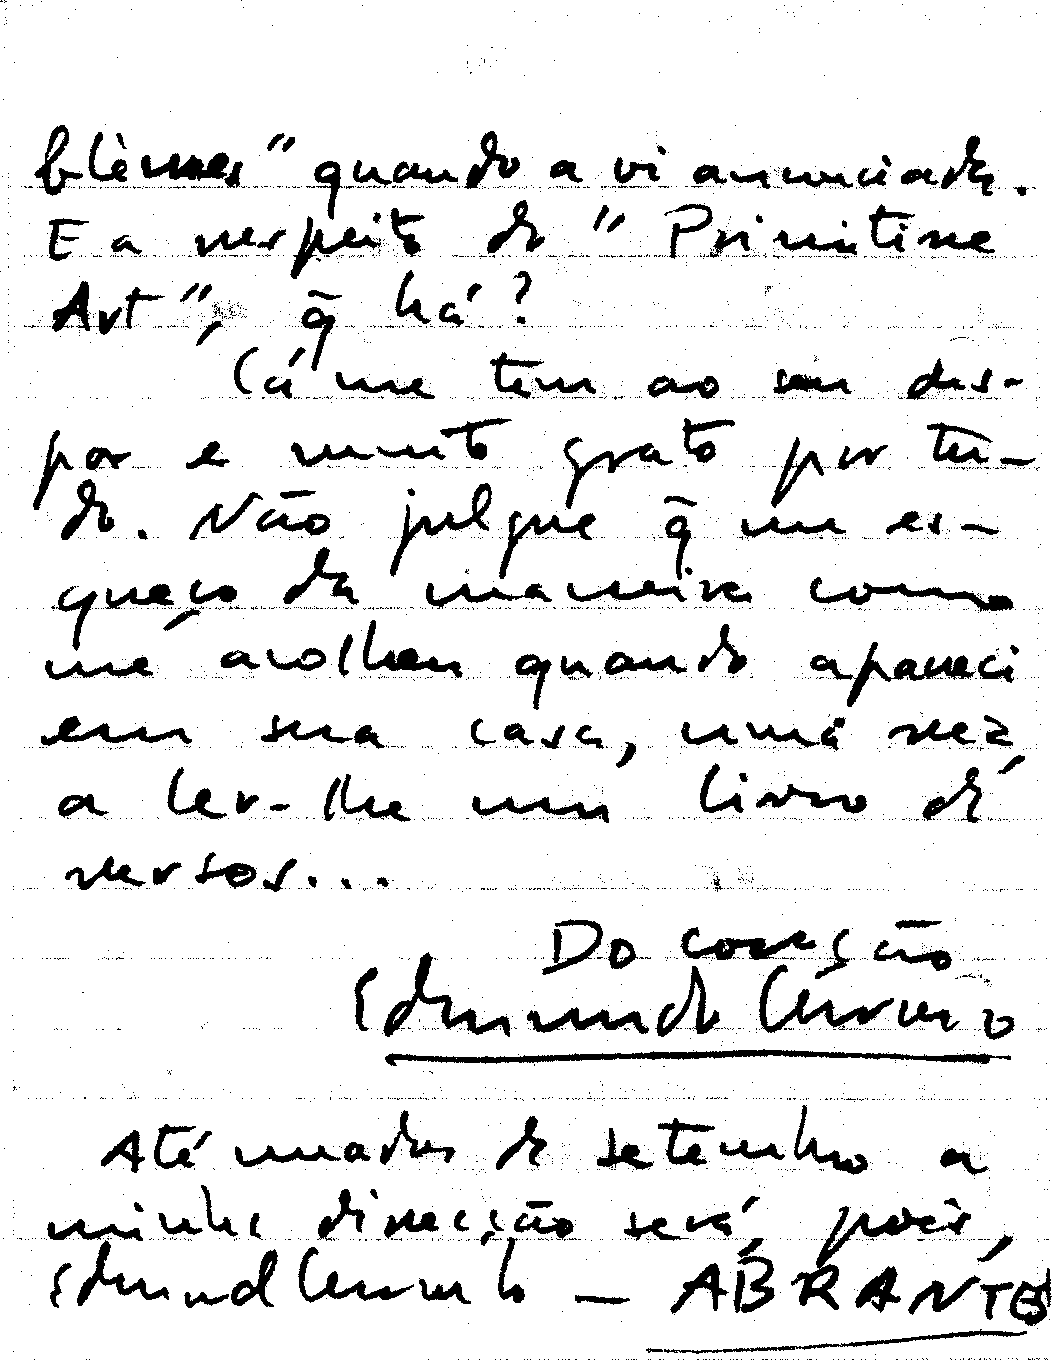 blèmes" quando a vi anunciada.
E a respeito do "Primitive
Art", q̃ há?
Cá me tem ao seu dis-
por e muito grato por tu-
do. Não julgue q̃ me es-
queço da maneira como
me acolheu quando apareci
em sua casa, uma vez,
a ler-lhe um livro de
versos...
Do coração
Edmundo
Até meados de setembro a
minha direcção será, pois,
Edmund — ABRANTES